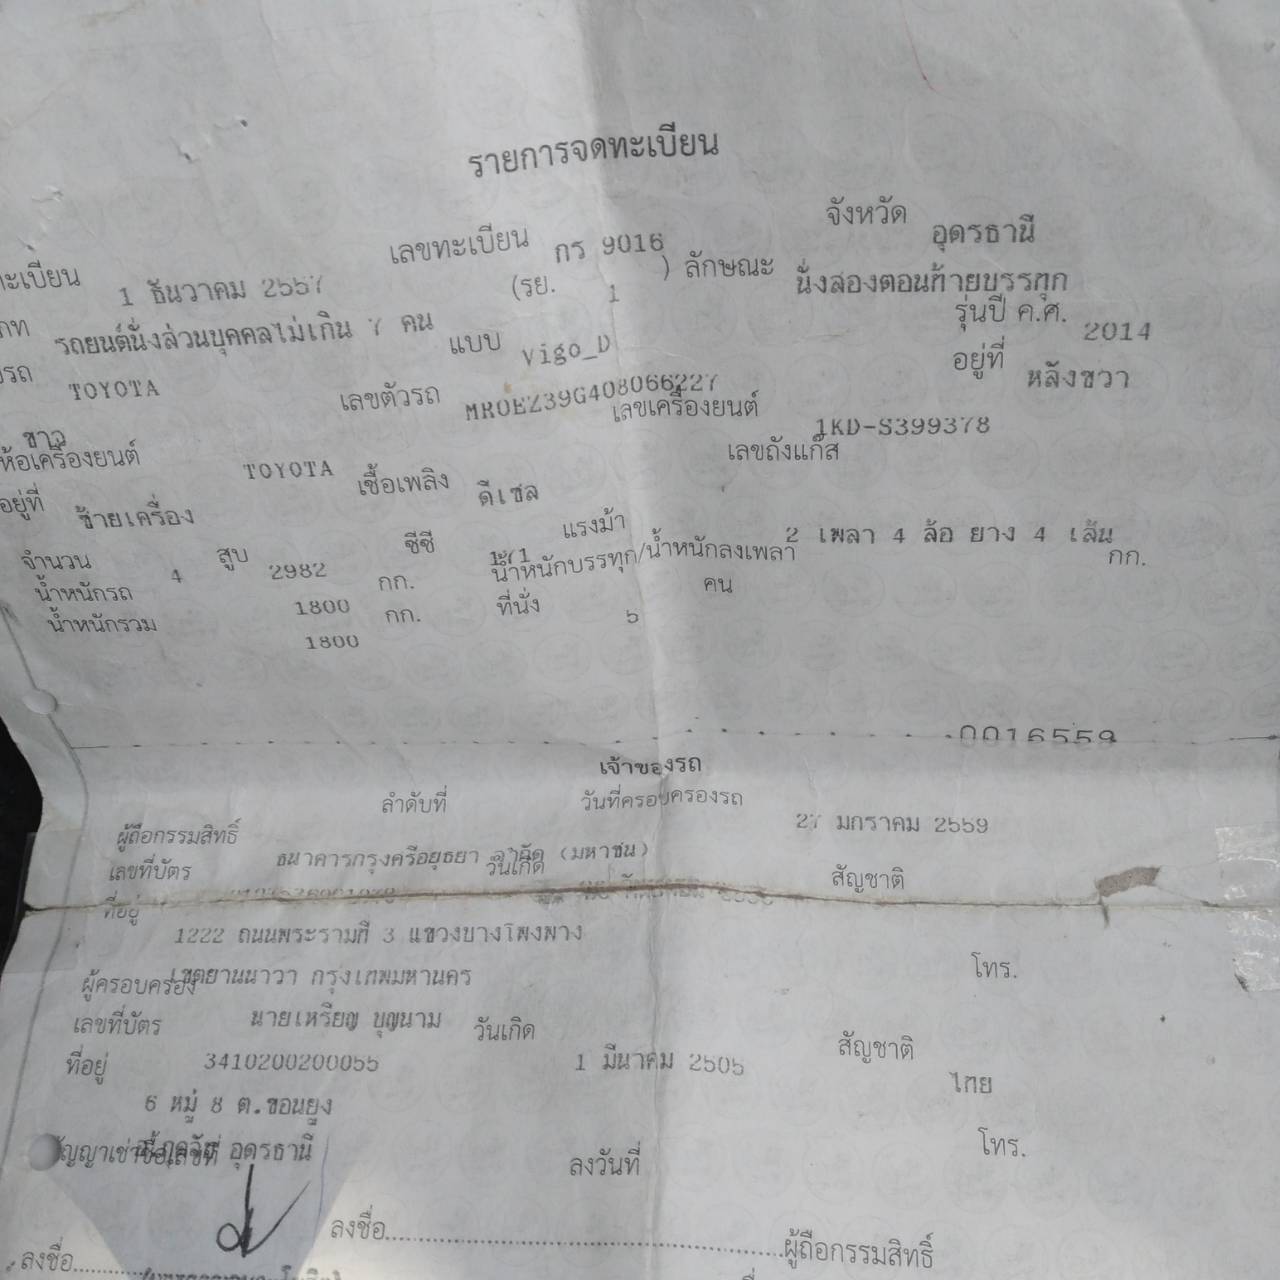 รายการจดทะเบียน
ทะเบียน 1 ธันวาคม 2557 เลขทะเบียน กร 9016 จังหวัด อุดรธานี
รถยนต์นั่งส่วนบุคคลไม่เกิน 7 คน (รย. 1 ) ลักษณะ นั่งสองตอนท้ายบรรทุก
รถ TOYOTA แบบ Vigo_D รุ่นปี ค.ศ. 2014
เลขตัวรถ MR0EZ39G408066227 อยู่ที่ หลังขวา
ขาว
ห้อเครื่องยนต์ TOYOTA เลขเครื่องยนต์ 1KD-S399378
อยู่ที่ ซ้ายเครื่อง เชื้อเพลิง ดีเซล เลขถังแก๊ส
จำนวน 4 สูบ 2982 ซีซี 171 แรงม้า 2 เพลา 4 ล้อ ยาง 4 เส้น
น้ำหนักรถ 1800 กก. น้ำหนักบรรทุก/น้ำหนักลงเพลา กก.
น้ำหนักรวม 1800 กก. ที่นั่ง 5 คน
0016559
เจ้าของรถ
ลำดับที่ วันที่ครอบครองรถ 27 มกราคม 2559
ผู้ถือกรรมสิทธิ์ ธนาคารกรุงศรีอยุธยา จำกัด (มหาชน)
เลขที่บัตร วันเกิด สัญชาติ
ที่อยู่ 1222 ถนนพระรามที่ 3 แขวงบางโพงพาง
เขตยานนาวา กรุงเทพมหานคร โทร.
ผู้ครอบครอง นายเหรียญ บุญนาม
เลขที่บัตร 3410200200055 วันเกิด 1 มีนาคม 2505 สัญชาติ ไทย
ที่อยู่ 6 หมู่ 8 ต.ขอนยูง
อุดรธานี โทร.
สัญญาเช่าซื้อเลขที่ ลงวันที่
ลงชื่อ ผู้ถือกรรมสิทธิ์
ลงชื่อ